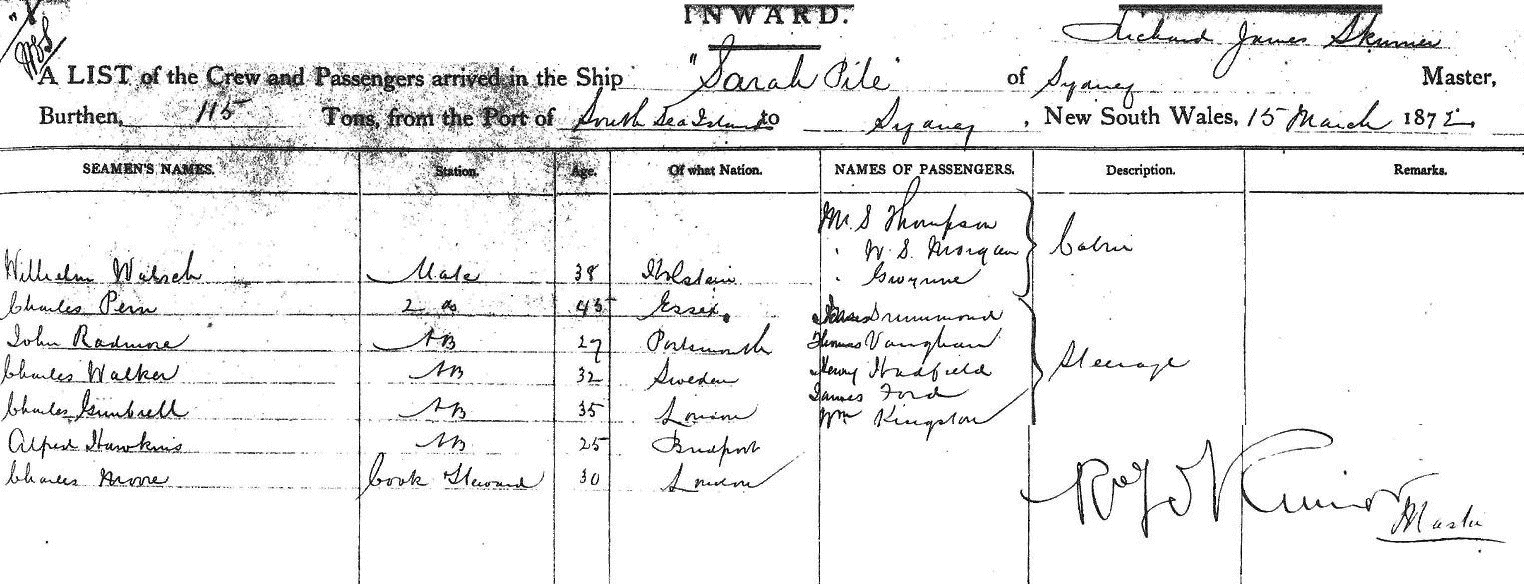 INWARD.
Richard James Skinner
A LIST of the Crew and Passengers arrived in the Ship "Sarah Pile" of Sydney Master,
Burthen, 115 Tons, from the Port of South Sea Islands to Sydney, New South Wales, 15 March 1872
SEAMEN'S NAMES. Station. Age. Of what Nation. NAMES OF PASSENGERS. Description. Remarks.
Mr. S Thompson
" W. S. Morgan Cabin
Wilhelm Mate 38 Holstein " Gwynne
Charles Penn 2 do 45 Essex. Drummond
John Radmore AB 27 Portsmouth Thomas Vaughan
Charles Walker AB 32 Sweden Henry Hadfield Steerage
James Ford
Charles Gumbrell AB 35 London Wm Kingston
Alfred Hawkins AB 25 Bridport
Charles Moore Cook Steward 30 London
Master